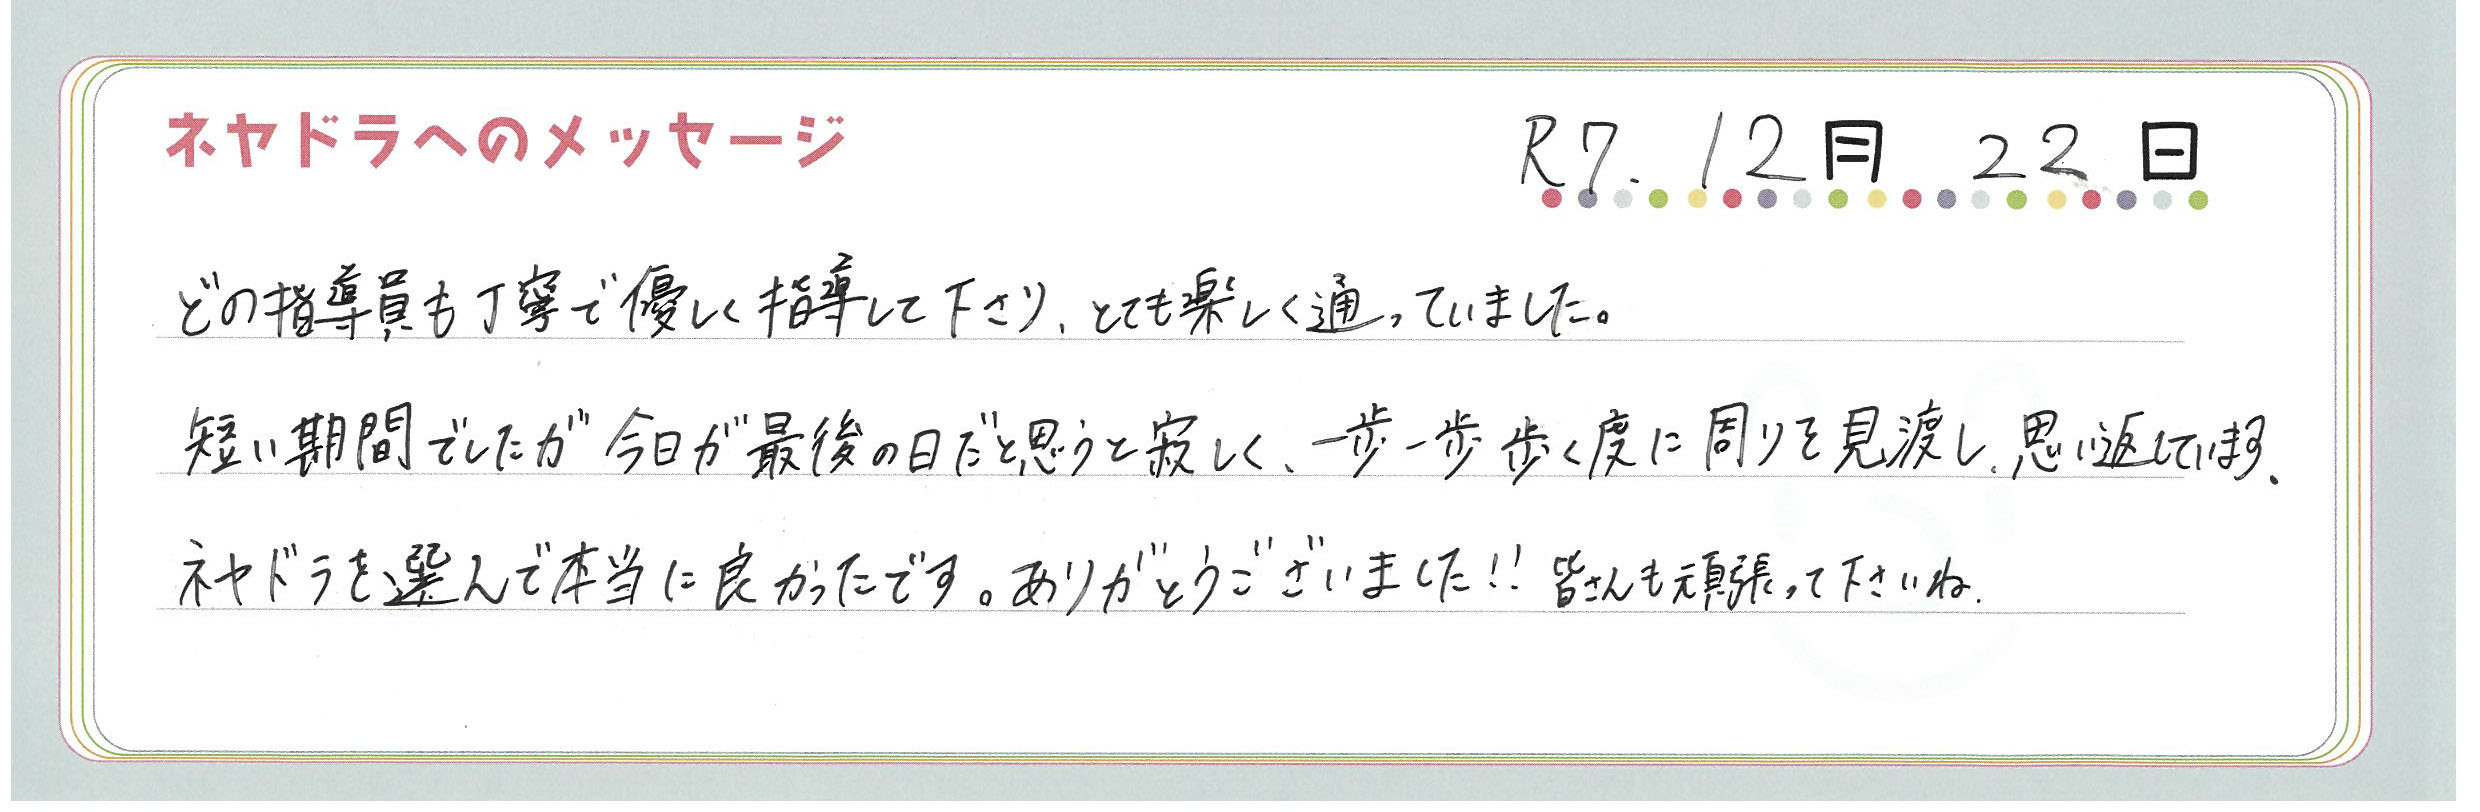 ネヤドラへのメッセージ
R7. 12月 22日
どの指導員も丁寧で優しく指導して下さり、とても楽しく通っていました。
短い期間でしたが今日が最後の日だと思うと寂しく、一歩一歩歩く度に周りを見渡し、思い返しています、
ネヤドラを選んで本当に良かったです。ありがとうございました!! 皆さんも頑張って下さいね.